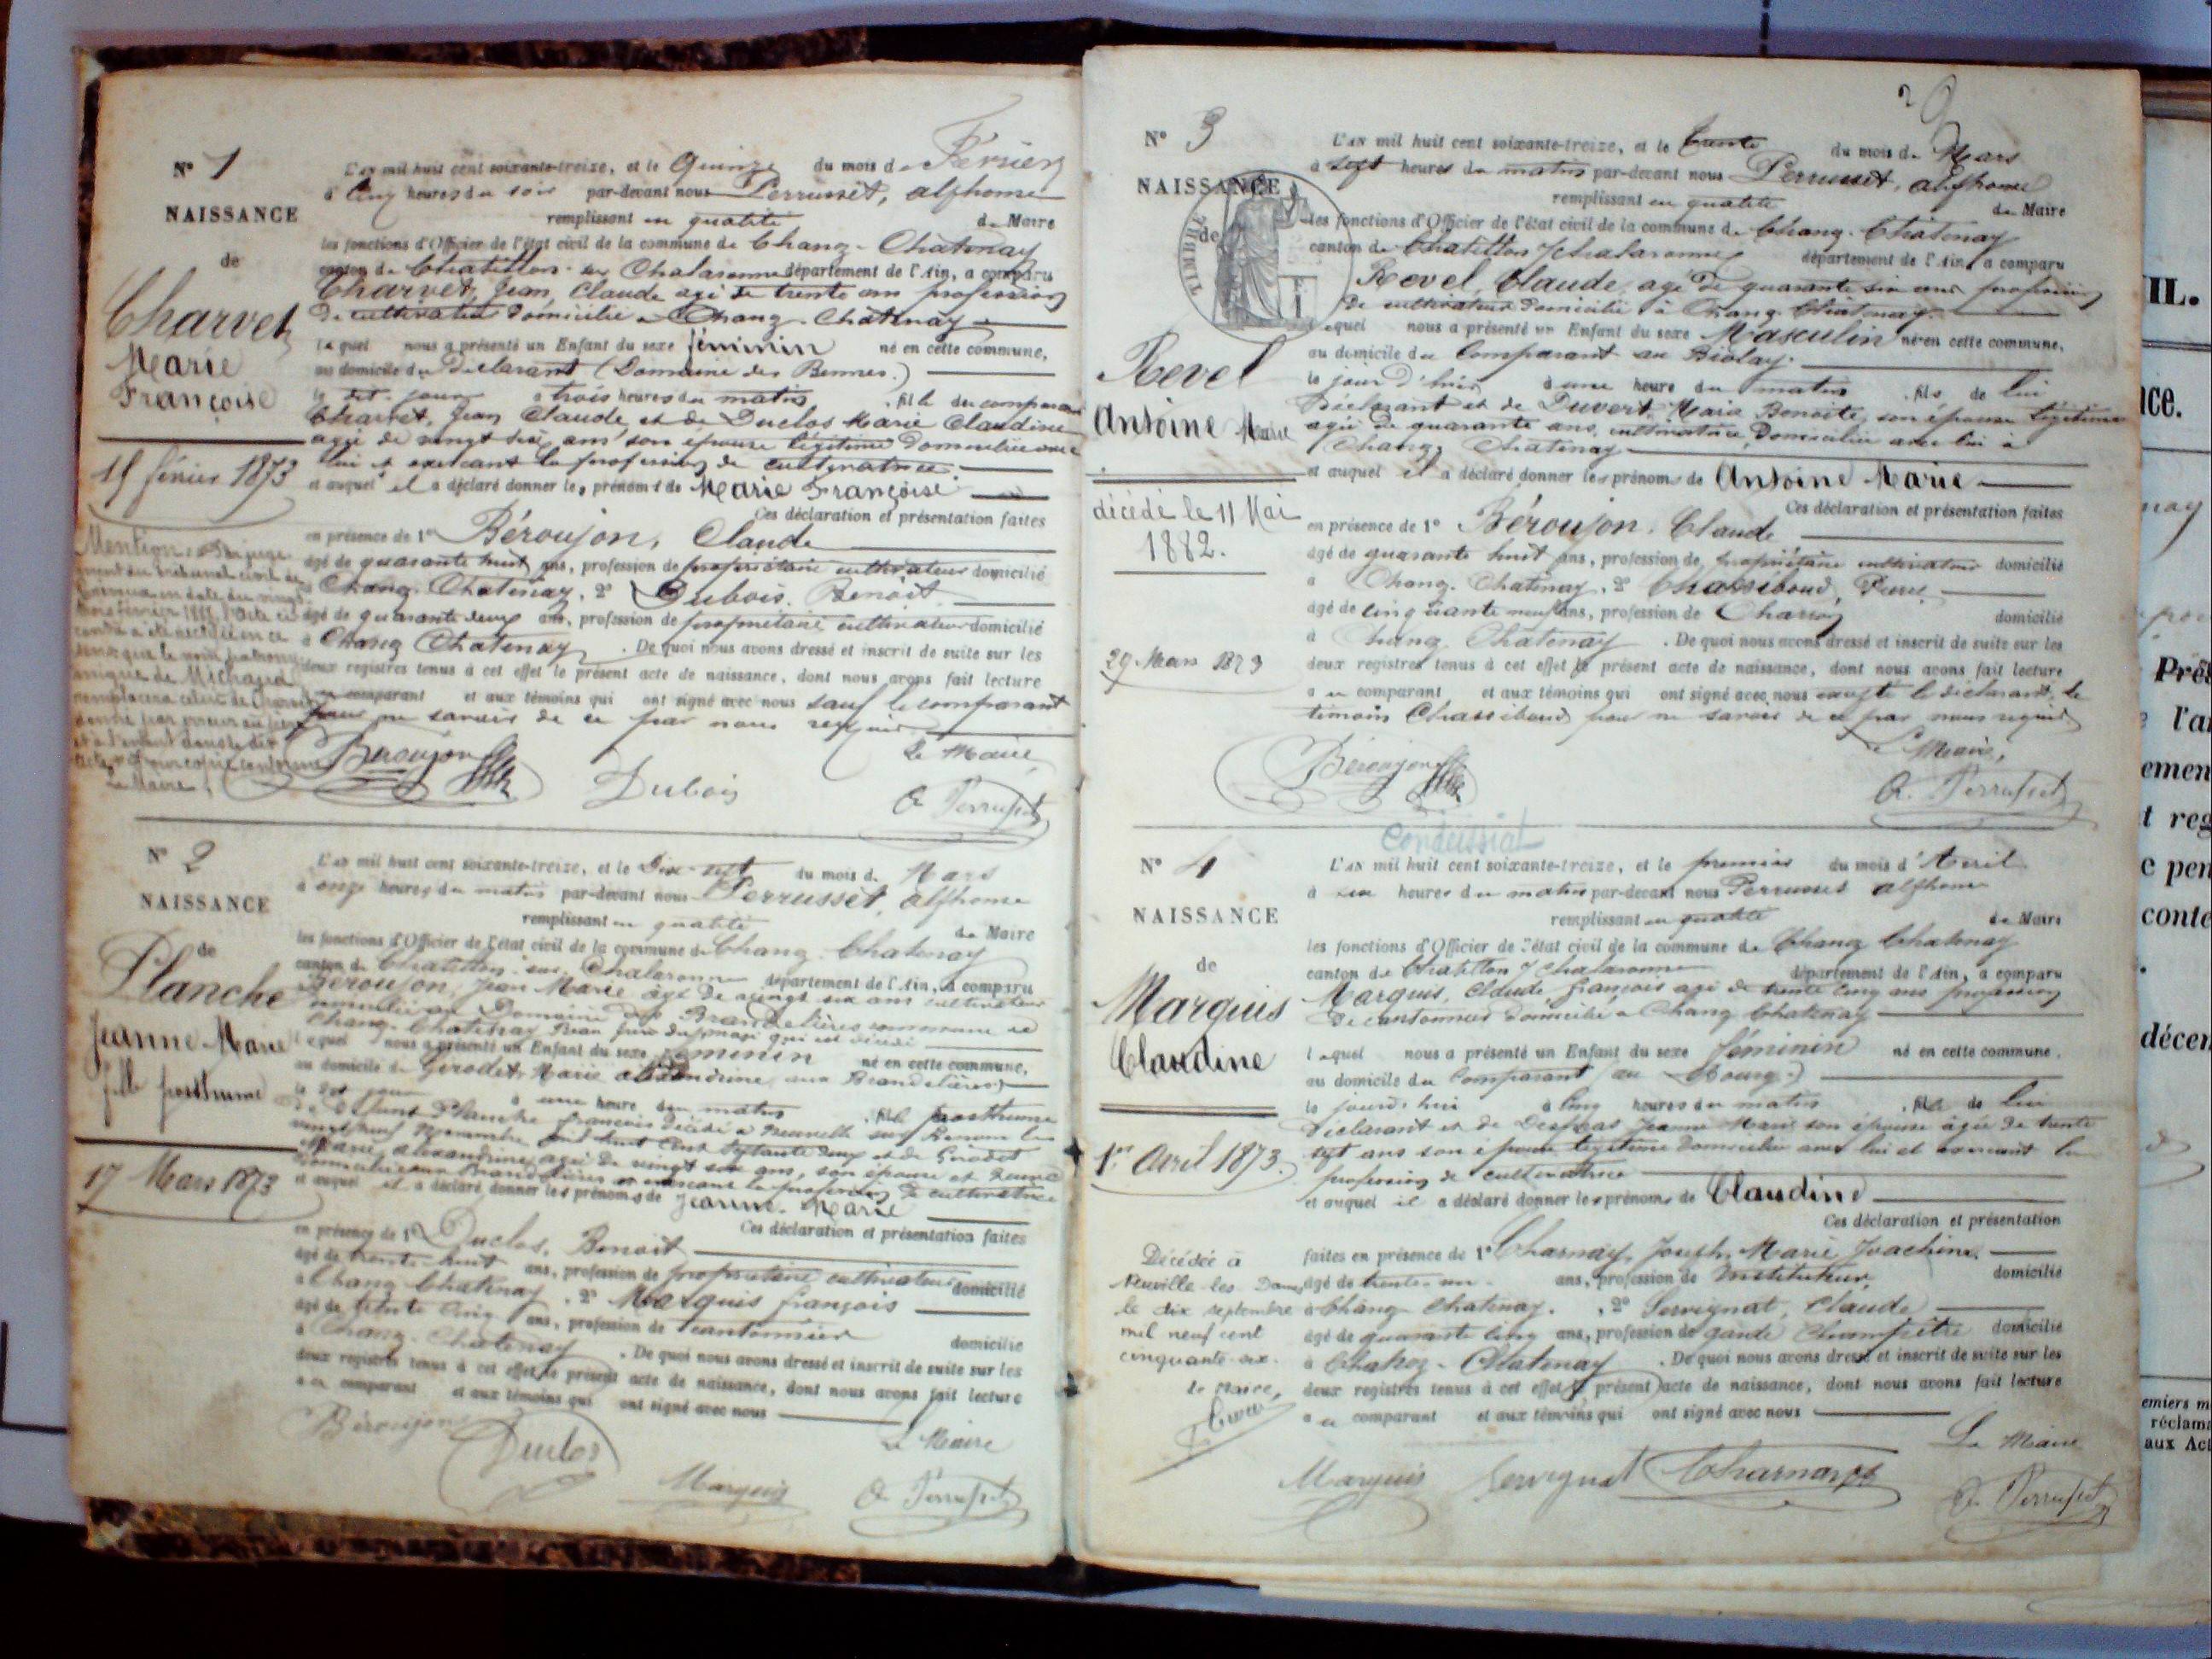 N° 1
NAISSANCE
de
Charvet
Marie
Françoise
15 février 1873
Mention: Par juge
ment du tribunal civil de
en date du vingt
février l'acte ci
contre a été rectifié en ce
sens que le nom patrony
mique de Michaud
remplacera celui de Charvet
donné par erreur au père
et à l'enfant dans le dit
acte. Pour copie conforme
Le Maire,
L'AN mil huit cent soixante-treize, et le Quinze du mois de Février
à Cinq heures du soir par-devant nous Perrusset, Alphonse
remplissant en qualité de Maire
les fonctions d'Officier de l'état civil de la commune de Chanoz-Châtenay
canton de Chatillon-sur Chalaronne département de l'Ain, a comparu
Charvet, Jean, Claude agé de trente ans profession
de cultivateur domicilié à Chanoz-Châtenay
lequel nous a présenté un Enfant du sexe féminin né en cette commune,
au domicile du Déclarant (Domaine des Bennes.)
le dit jour à trois heures du matin, fille du comparant
Charvet, Jean Claude et de Duclos Marie Claudine
agée de vingt six ans son épouse légitime domiciliée avec
lui et exercant la profession de cultivatrice
et auquel il a déclaré donner les prénoms de Marie Françoise
Ces déclaration et présentation faites
en présence de 1° Béroujon, Claude
âgé de quarante huit ans, profession de propriétaire cultivateur domicilié
à Chanoz-Chatenay, 2° Dubois, Benoît
âgé de quarante deux ans, profession de propriétaire cultivateur domicilié
à Chanoz Chatenay. De quoi nous avons dressé et inscrit de suite sur les
deux registres tenus à cet effet le présent acte de naissance, dont nous avons fait lecture
au comparant et aux témoins qui ont signé avec nous sauf le comparant
pour ne savoir de ce par nous requis
Le Maire
Béroujon Dubois A Perrusset
N° 2
NAISSANCE
de
Planche
Jeanne Marie
fille posthume
17 Mars 1873
L'AN mil huit cent soixante-treize, et le Dix-sept du mois de Mars
à onze heures du matin par-devant nous Perrusset, Alphonse
remplissant en qualité de Maire
les fonctions d'Officier de l'état civil de la commune de Chanoz-Chatenay
canton de Chatillon-sur-Chalaronne département de l'Ain, a comparu
Béroujon, Jean Marie âgé de vingt six ans cultivateur
domicilié au Domaine des Brandelières commune de
Chanoz-Chatenay du mari qui est décédé
lequel nous a présenté un Enfant du sexe féminin né en cette commune,
au domicile de Girodet, Marie Alexandrine, aux Brandelières
le dit jour à une heure du matin, fille posthume
de défunt Planche François décédé à Neuville sur Renom le
vingt neuf Novembre mil huit cent septante deux et de Girodet
Marie, Alexandrine agée de vingt six ans, son épouse et
domiciliée aux Brandelières et exercant la profession de cultivatrice
et auquel il a déclaré donner les prénoms de Jeanne-Marie
Ces déclaration et présentation faites
en présence de 1° Duclos, Benoit
âgé de trente-huit ans, profession de propriétaire cultivateur domicilié
à Chanoz Chatenay, 2° Marquis François
âgé de trente cinq ans, profession de cantonnier domicilié
à Chanoz-Chatenay. De quoi nous avons dressé et inscrit de suite sur les
deux registres tenus à cet effet le présent acte de naissance, dont nous avons fait lecture
au comparant et aux témoins qui ont signé avec nous
Le Maire
Béroujon Duclos Marquis A Perrusset
N° 3
NAISSANCE
de
TIMBRE
Revel
Antoine Marie
décédé le 11 Mai
1882.
29 Mars 1873
L'AN mil huit cent soixante-treize, et le trente du mois de Mars
à sept heures du matin par-devant nous Perrusset, Alphonse
remplissant en qualité de Maire
les fonctions d'Officier de l'état civil de la commune de Chanoz-Châtenay
canton de Chatillon s/Chalaronne département de l'Ain, a comparu
Revel, Claude, agé de quarante six ans profession
de cultivateur domicilié à Chanoz Châtenay.
lequel nous a présenté un Enfant du sexe Masculin né en cette commune,
au domicile du Comparant au Biolay.
le jour d'hier à une heure du matin, fils de lui
Déclarant et de Duvert, Marie Benoite, son épouse légitime
agée de quarante ans, cultivatrice, domiciliée avec lui à
Chanoz Chatenay
et auquel il a déclaré donner les prénoms de Antoine Marie
Ces déclaration et présentation faites
en présence de 1° Béroujon, Claude
âgé de quarante huit ans, profession de propriétaire cultivateur domicilié
à Chanoz-Chatenay, 2° Chassiboud, Pierre
âgé de cinquante neuf ans, profession de Charron domicilié
à Chanoz Chatenay. De quoi nous avons dressé et inscrit de suite sur les
deux registres tenus à cet effet le présent acte de naissance, dont nous avons fait lecture
au comparant et aux témoins qui ont signé avec nous excepté le déclarant, le
témoin Chassiboud pour ne savoir de ce par nous requis
Le Maire,
Béroujon A. Perrusset
Condeissiat
N° 4
NAISSANCE
de
Marquis
Claudine
1er Avril 1873.
Décédée à
Neuville-les-Dames
le dix septembre
mil neuf cent
cinquante-six.
Le Maire,
L'AN mil huit cent soixante-treize, et le premier du mois d'Avril
à six heures du matin par-devant nous Perrusset Alphonse
remplissant en qualité de Maire
les fonctions d'Officier de l'état civil de la commune de Chanoz Chatenay
canton de Chatillon s/Chalaronne département de l'Ain, a comparu
Marquis, Claude, François agé de trente cinq ans profession
de cantonnier domicilié à Chanoz Chatenay
lequel nous a présenté un Enfant du sexe féminin né en cette commune,
au domicile du Comparant (au Bourg.)
le jourd'hui à cinq heures du matin, fille de lui
Déclarant et de Desplas Jeanne Marie son épouse âgée de trente
sept ans son épouse légitime domiciliée avec lui et exercant la
profession de cultivatrice
et auquel il a déclaré donner les prénoms de Claudine
Ces déclaration et présentation
faites en présence de 1° Charnay, Joseph, Marie Joachim,
âgé de trente-un ans, profession de Instituteur, domicilié
à Chanoz-Chatenay. , 2° Servignat, Claude
âgé de quarante cinq ans, profession de garde Champêtre domicilié
à Chanoz-Chatenay. De quoi nous avons dressé et inscrit de suite sur les
deux registres tenus à cet effet le présent acte de naissance, dont nous avons fait lecture
au comparant et aux témoins qui ont signé avec nous
Le Maire
Marquis Servignat Charnay A. Perrusset